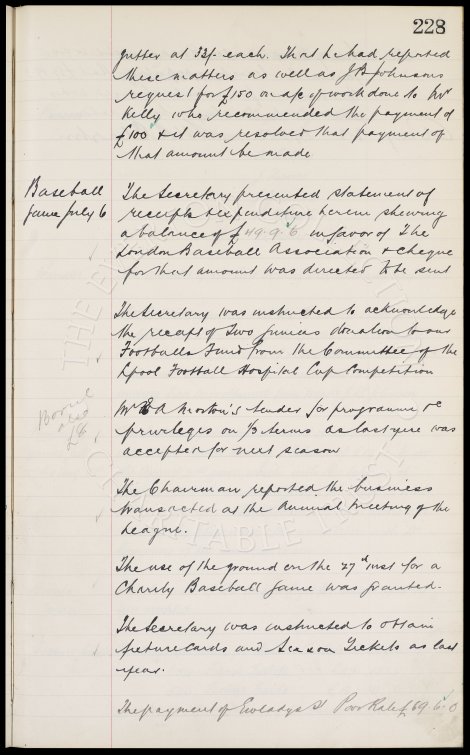 228
gutter at 33/- each. That he had reported
these matters as well as J B Johnsons
request for £150 on a/c of work done to Mr
Kelly who recommended the payment of
£100 & it was resolved that payment of
that amount be made
Baseball
Game July 6
The Secretary presented statement of
receipts & expenditure herein shewing
a balance of £49.9.6 in favor of The
London Baseball Association & cheque
for that amount was directed to be sent
The Secretary was instructed to acknowledge
the receipt of Two Guineas donation to our
Footballs Fund from the Committee of the
Lpool Football Hospital Cup Competition
Mr A Morton's tender for programme &c
privileges on 1/3 terms as last year was
accepted for next season
£8
The Chairman reported the business
transacted at the Annual Meeting of the
League.
The use of the ground on the 27th inst for a
Charity Baseball Game was granted.
The Secretary was instructed to obtain
fixture cards and Season Tickets as last
year.
The payment of Gwladys St Poor Rate £69.6.0
THE EVERTON
CHARITABLE TRUST